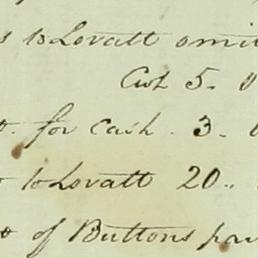 s to Lovatt omit
Cwt 5. 0
for cash. 3.
to Lovatt 20..
of Buttons pa